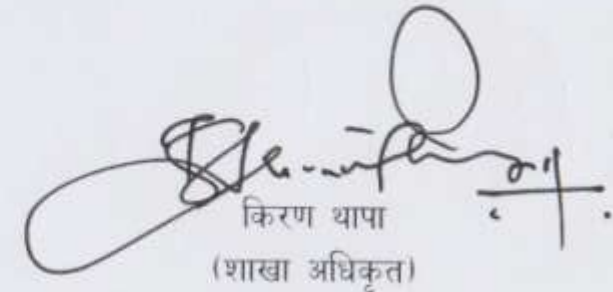 किरण थापा
(शाखा अधिकृत)